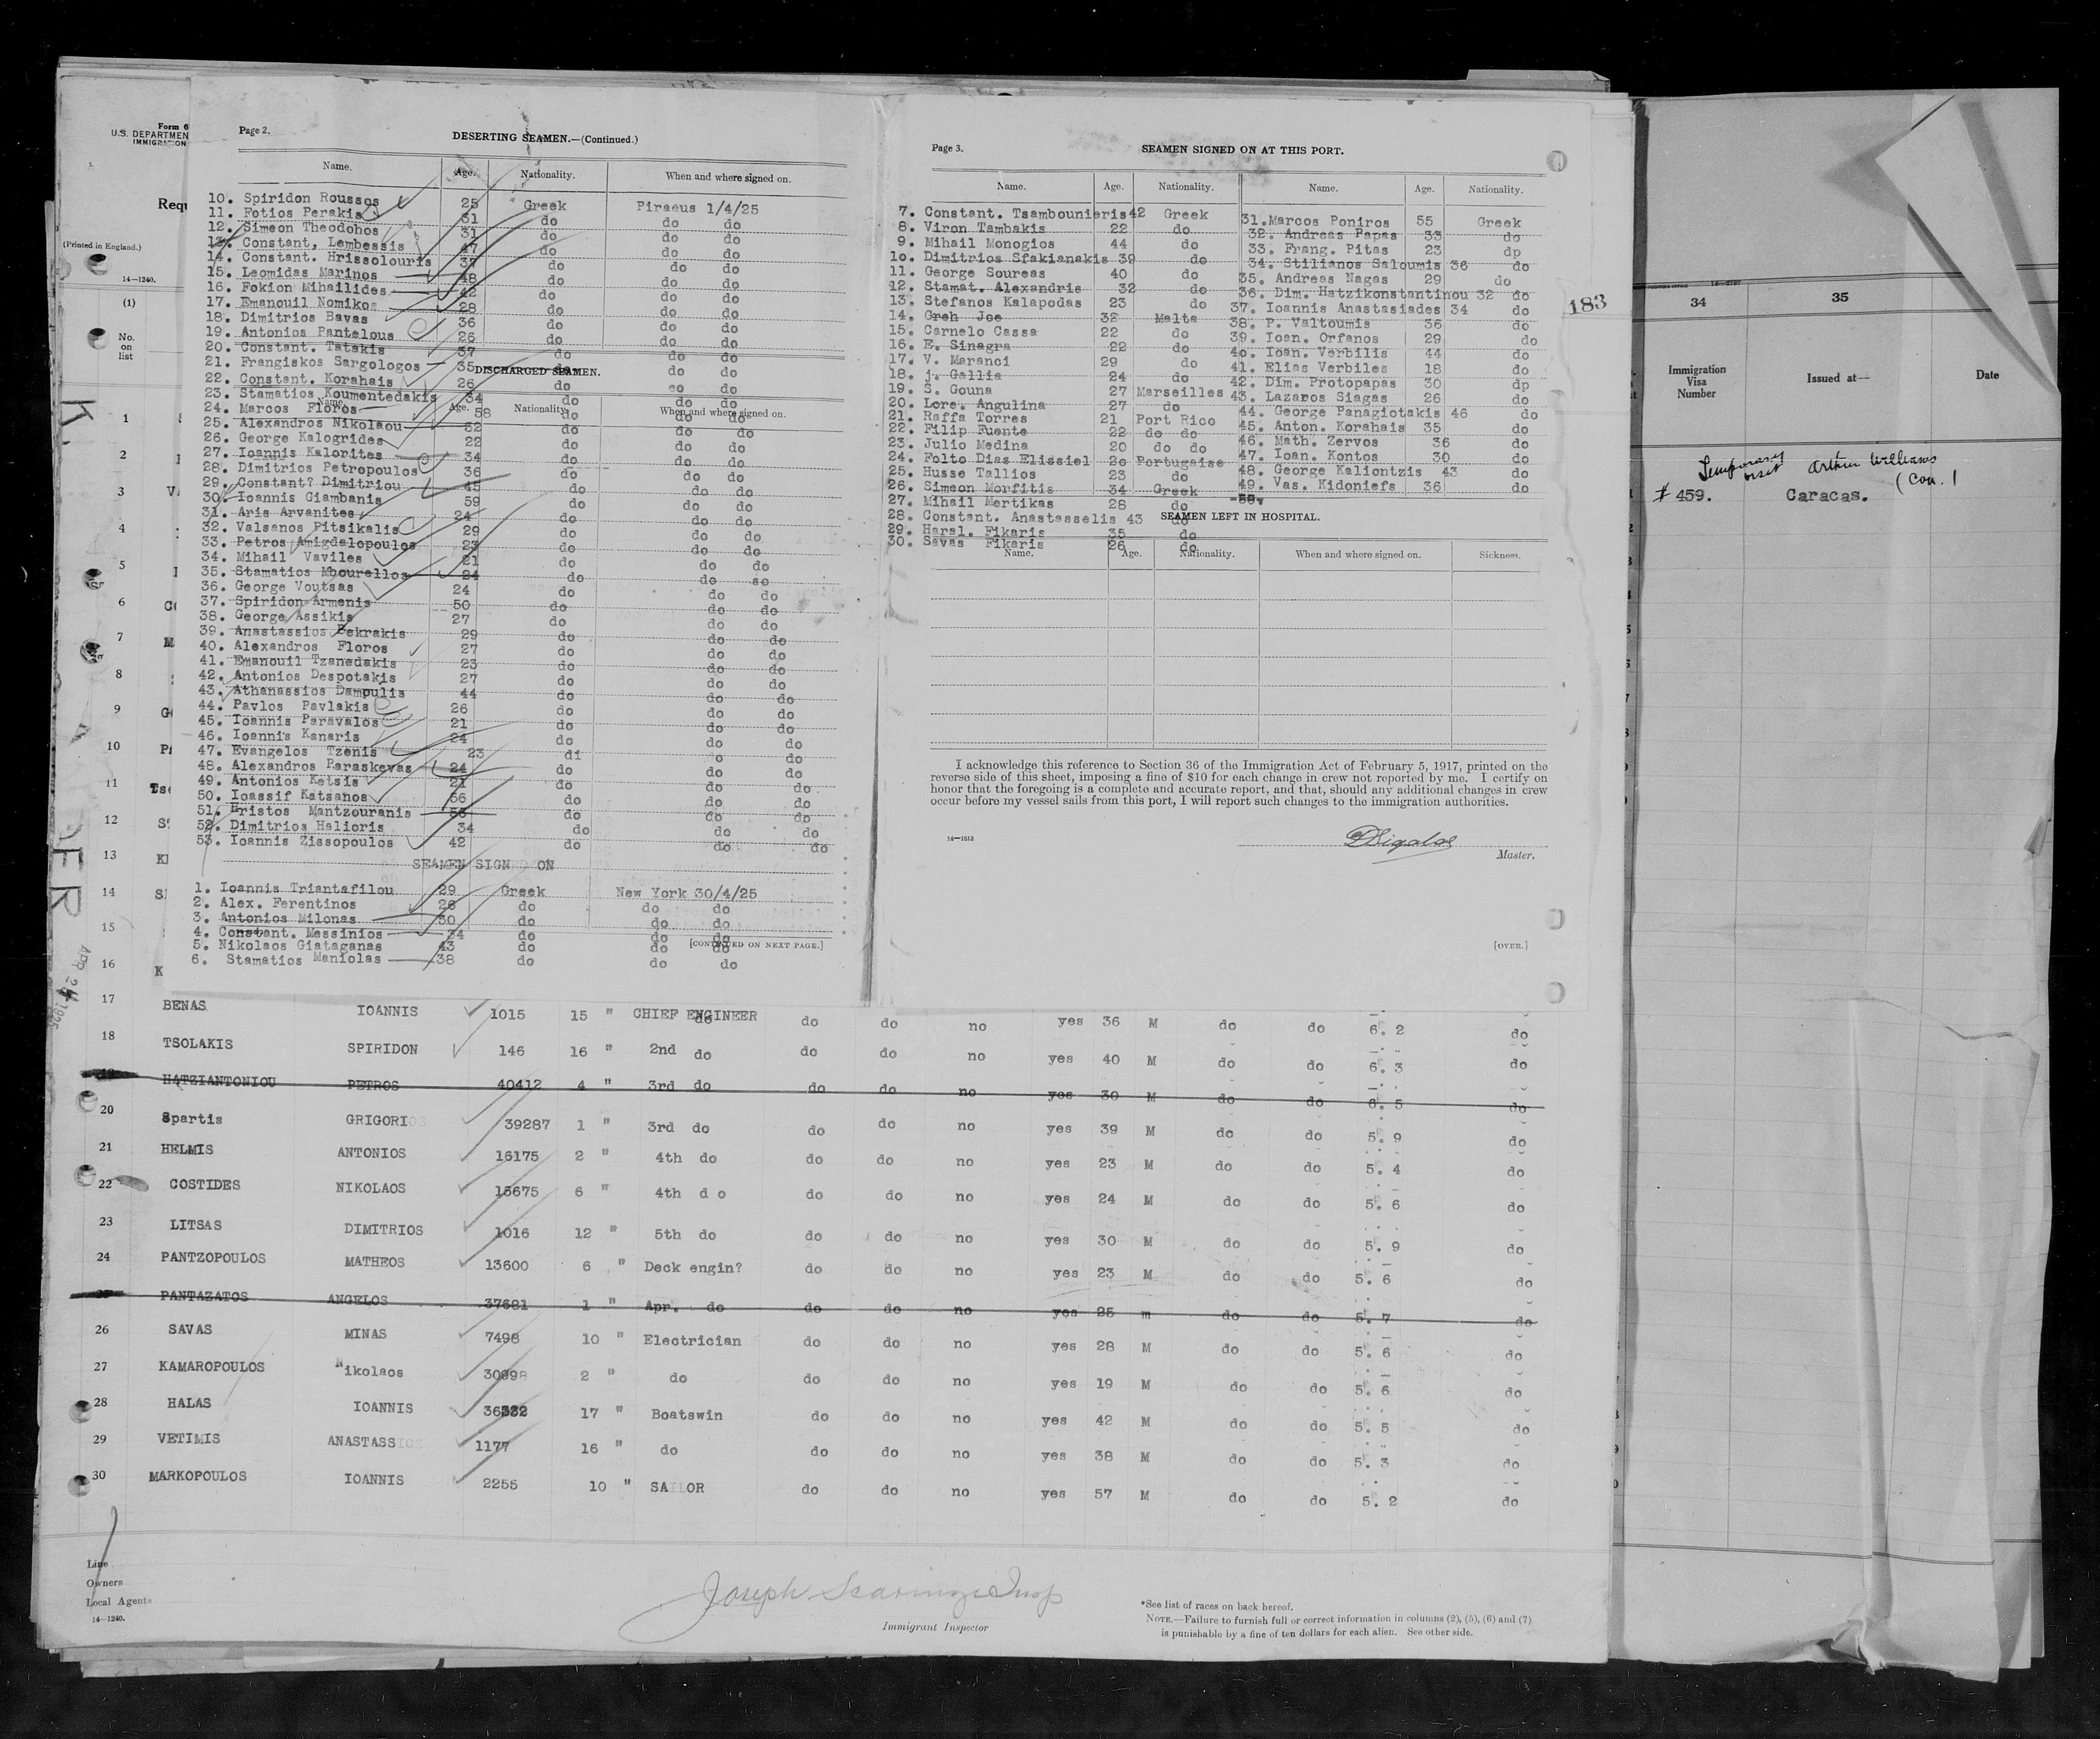 Form 6
U.S. DEPARTMEN
IMMIGRATION
Requ
(Printed in England.)
14—1240.
(1)
No. on list
Page 2.
DESERTING SEAMEN.—(Continued.)
Name. Age. Nationality. When and where signed on.
10. Spiridon Roussos 25 Greek Piraeus 1/4/25
11. Fotios Perakis 31 do do do
12. Simeon Theodohos 31 do do do
13. Constant, Lembessis 47 do do do
14. Constant. Hrissolouris 37 do do do
15. Leomidas Marinos 48 do do do
16. Fokion Mihailides 42 do do do
17. Emanouil Nomikos 28 do do do
18. Dimitrios Bavas 36 do do do
19. Antonios Pantelous 26 do do do
20. Constant. Tatakis 37 do do do
21. Frangiskos Sargologos 35 do do do
DISCHARGED SEAMEN.
22. Constant. Korahais 26 do eo do
23. Stamatios Koumentedakis 34 do do do
Name. Age. Nationality. When and where signed on.
24. Marcos Floros 58 do do do
25. Alexandros Nikolaou 62 do do do
26. George Kalogrides 22 do do do
27. Ioannis Kalorites 34 do do do
28. Dimitrios Petropoulos 36 do do do
29. Constant? Dimitriou 45 do do do
30. Ioannis Giambanis 59 do do do
31. Aris Arvanites 24 do do do
32. Valsanos Pitsikalis 29 do do do
33. Petros Amigdalopoulos 23 do do do
34. Mihail Vaviles 21 do do do
35. Stamatios Mbourellos 24 do do so
36. George Voutsas 24 do do do
37. Spiridon Armenis 50 do do do
38. George Assikis 27 do do do
39. Anastassios Bekrakis 29 do do do
40. Alexandros Floros 27 do do do
41. Emanouil Tzanedakis 23 do do do
42. Antonios Despotakis 27 do do do
43. Athanassios Dampulis 44 do do do
44. Pavlos Pavlakis 26 do do do
45. Ioannis Paravalos 21 do do do
46. Ioannis Kanaris 24 do do do
47. Evangelos Tzenis 23 di o do
48. Alexandros Paraskevas 24 do do do
49. Antonios Ketsis 21 do do do
50. Ioassif Katsanos 56 do do do
51. Hristos Mantzouranis do do
52. Dimitrios Halioris 34 do do do
53. Ioannis Zissopoulos 42 do do do
SEAMEN SIGN ON
1. Ioannis Triantafilou 29 Greek New York 30/4/25
2. Alex. Ferentinos 26 do do do
3. Antonios Milonas 30 do do do
4. Constant. Messinios 34 do do do
5. Nikolaos Giataganas 43 do do do
[CONTINUED ON NEXT PAGE.]
6. Stamatios Maniolas 38 do do do
Page 3.
SEAMEN SIGNED ON AT THIS PORT.
Name. Age. Nationality. Name. Age. Nationality.
7. Constant. Tsambounieris 42 Greek 31. Marcos Poniros 55 Greek
8. Viron Tambakis 22 do 32. Andreas Papas 33 do
9. Mihail Monogios 44 do 33. Frang. Pitas 23 dp
10. Dimitrios Sfakianakis 39 do 34. Stilianos Saloumis 36 do
11. George Soureas 40 do 35. Andreas Nagas 29 do
12. Stamat. Alexandris 32 do 36. Dim. Hatzikonstantinou 32 do
13. Stefanos Kalapodas 23 do 37. Ioannis Anastasiades 34 do
14. Greh Joe 32 Malta 38. P. Valtoumis 36 do
15. Carnelo Cassa 22 do 39. Ioan. Orfanos 29 do
16. E. Sinagra 22 do 40. Ioan. Verbilis 44 do
17. V. Maranci 29 do 41. Elias Verbiles 18 do
18. j. Gallia 24 do 42. Dim. Protopapas 30 dp
19. S. Gouna 27 Marseilles 43. Lazaros Siagas 26 do
20. Lore. Angulina 27 do 44. George Panagiotakis 46 do
21. Raffa Torres 21 Port Rico 45. Anton. Korahais 35 do
22. Filip Fuente 22 do do 46. Math. Zervos 36 do
23. Julio Medina 20 do do 47. Ioan. Kontos 30 do
24. Folto Dias Elissiel 26 Portugaise 48. George Kaliontzis 43 do
25. Husse Tallios 23 do 49. Vas. Kidoniefs 36 do
26. Simeon Morfitis 34 Greek 50.
27. Mihail Mertikas 28 do
28. Constant. Anastasselis 43 do
SEAMEN LEFT IN HOSPITAL.
29. Haral. Fikaris 35 do
30. Savas Fikaris 26 do
Name. Age. Nationality. When and where signed on. Sickness.
I acknowledge this reference to Section 36 of the Immigration Act of February 5, 1917, printed on the
reverse side of this sheet, imposing a fine of $10 for each change in crew not reported by me. I certify on
honor that the foregoing is a complete and accurate report, and that, should any additional changes in crew
occur before my vessel sails from this port, I will report such changes to the immigration authorities.
14—1613
Master.
[OVER.]
183
34 35
Immigration Visa Number Issued at— Date
Temporary visit Arthur Williams
# 459. Caracas. (Con.)
1
2
3
4
5
6
7
8
9
10
11
12
13
14
15
16
APR 24 1925
17 BENAS IOANNIS 1015 15 " CHIEF ENGINEER do do do no yes 36 M do do 6. 2 do
18 TSOLAKIS SPIRIDON 146 16 " 2nd do do do no yes 40 M do do 6. 3 do
19 HATZIANTONIOU PETROS 40412 4 " 3rd do do do no yes 30 M do do 6. 5 do
20 Spartis GRIGORIOS 39287 1 " 3rd do do do no yes 39 M do do 5. 9 do
21 HELMIS ANTONIOS 16175 2 " 4th do do do no yes 23 M do do 5. 4 do
22 COSTIDES NIKOLAOS 15675 6 " 4th d o do do no yes 24 M do do 5. 6 do
23 LITSAS DIMITRIOS 1016 12 " 5th do do do no yes 30 M do do 5. 9 do
24 PANTZOPOULOS MATHEOS 13600 6 " Deck engin? do do no yes 23 M do do 5. 6 do
25 PANTAZATOS ANGELOS 37681 1 " Apr. do do do no yes 25 m do do 5. 7 do
26 SAVAS MINAS 7498 10 " Electrician do do no yes 28 M do do 5. 6 do
27 KAMAROPOULOS Nikolaos 30998 2 " do do do no yes 19 M do do 5. 6 do
28 HALAS IOANNIS 36332 17 " Boatswin do do no yes 42 M do do 5. 5 do
29 VETIMIS ANASTASSIOS 1177 16 " do do do no yes 38 M do do 5. 3 do
30 MARKOPOULOS IOANNIS 2255 10 " SAILOR do do no yes 57 M do do 5. 2 do
Line
Owners
Local Agents
14—1240.
Joseph Scaringi Insp
Immigrant Inspector
*See list of races on back hereof.
NOTE.—Failure to furnish full or correct information in columns (2), (5), (6) and (7)
is punishable by a fine of ten dollars for each alien. See other side.